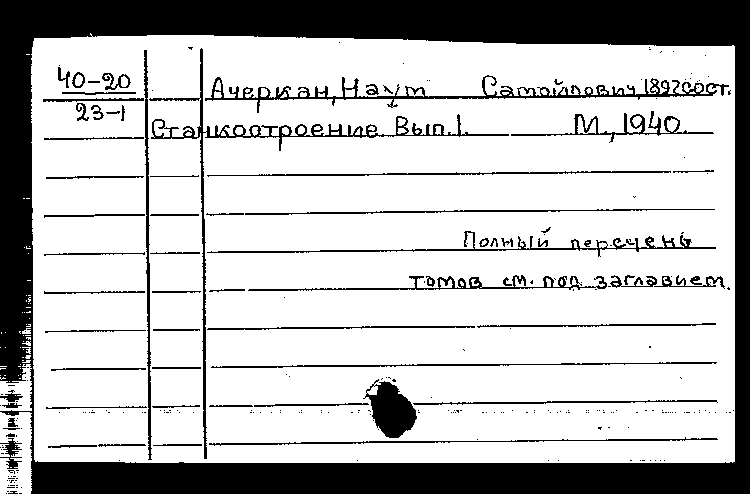 40-20
23-1
Ачеркан, Наум Самойлович, 1892 сост.
Станкостроение Вып. 1. М., 1940.
Полный перечень
томов см. под заглавием.